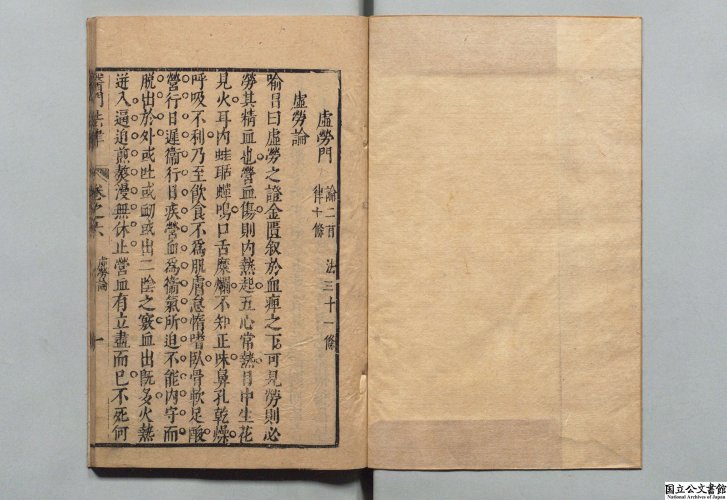 虛勞門
論二首 法三十一條
律十條
虛勞論
喻昌曰虛勞之證金匱叙於血痺之下可見勞則必
勞其精血也營血傷則内熱起五心常熱目中生花
見火耳内蛙聒蟬鳴口舌糜爛不知正味鼻孔乾燥
呼吸不利乃至飲食不爲肌膚怠惰嗜臥骨軟足酸
營行日遲衞行日疾營血爲衞氣所迫不能内守而
脱出於外或吐或衂或出二陰之竅血出既多火熱
迸入逼迫煎熬漫無休止營血有立盡而已不死何
醫門法律
卷之六
虛勞論
一
国立公文書館
National Archives of Japan